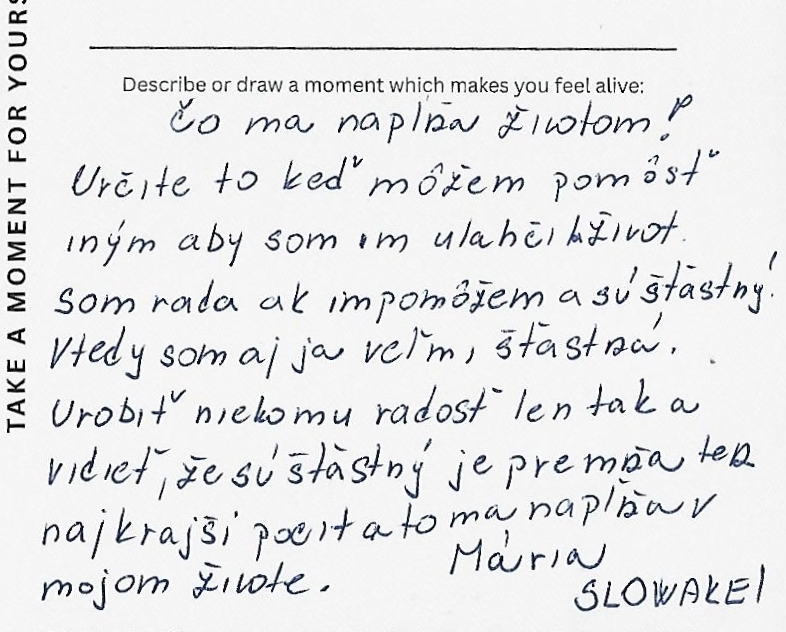 TAKE A MOMENT FOR YOURS
Describe or draw a moment which makes you feel alive:
Čo ma naplňa životom?
Určite to keď môžem pomôsť
iným aby som im ulahčila život.
som rada ak im pomôžem a sú štàstný!
Vtedy som aj ja veľmi štastná.
Urobiť niekomu radosť len tak a
vidieť, že sú štàstný je pre mňa ten
najkrajší pocit a to ma naplňa v
mojom živote.
Mária
SLOWAKEI